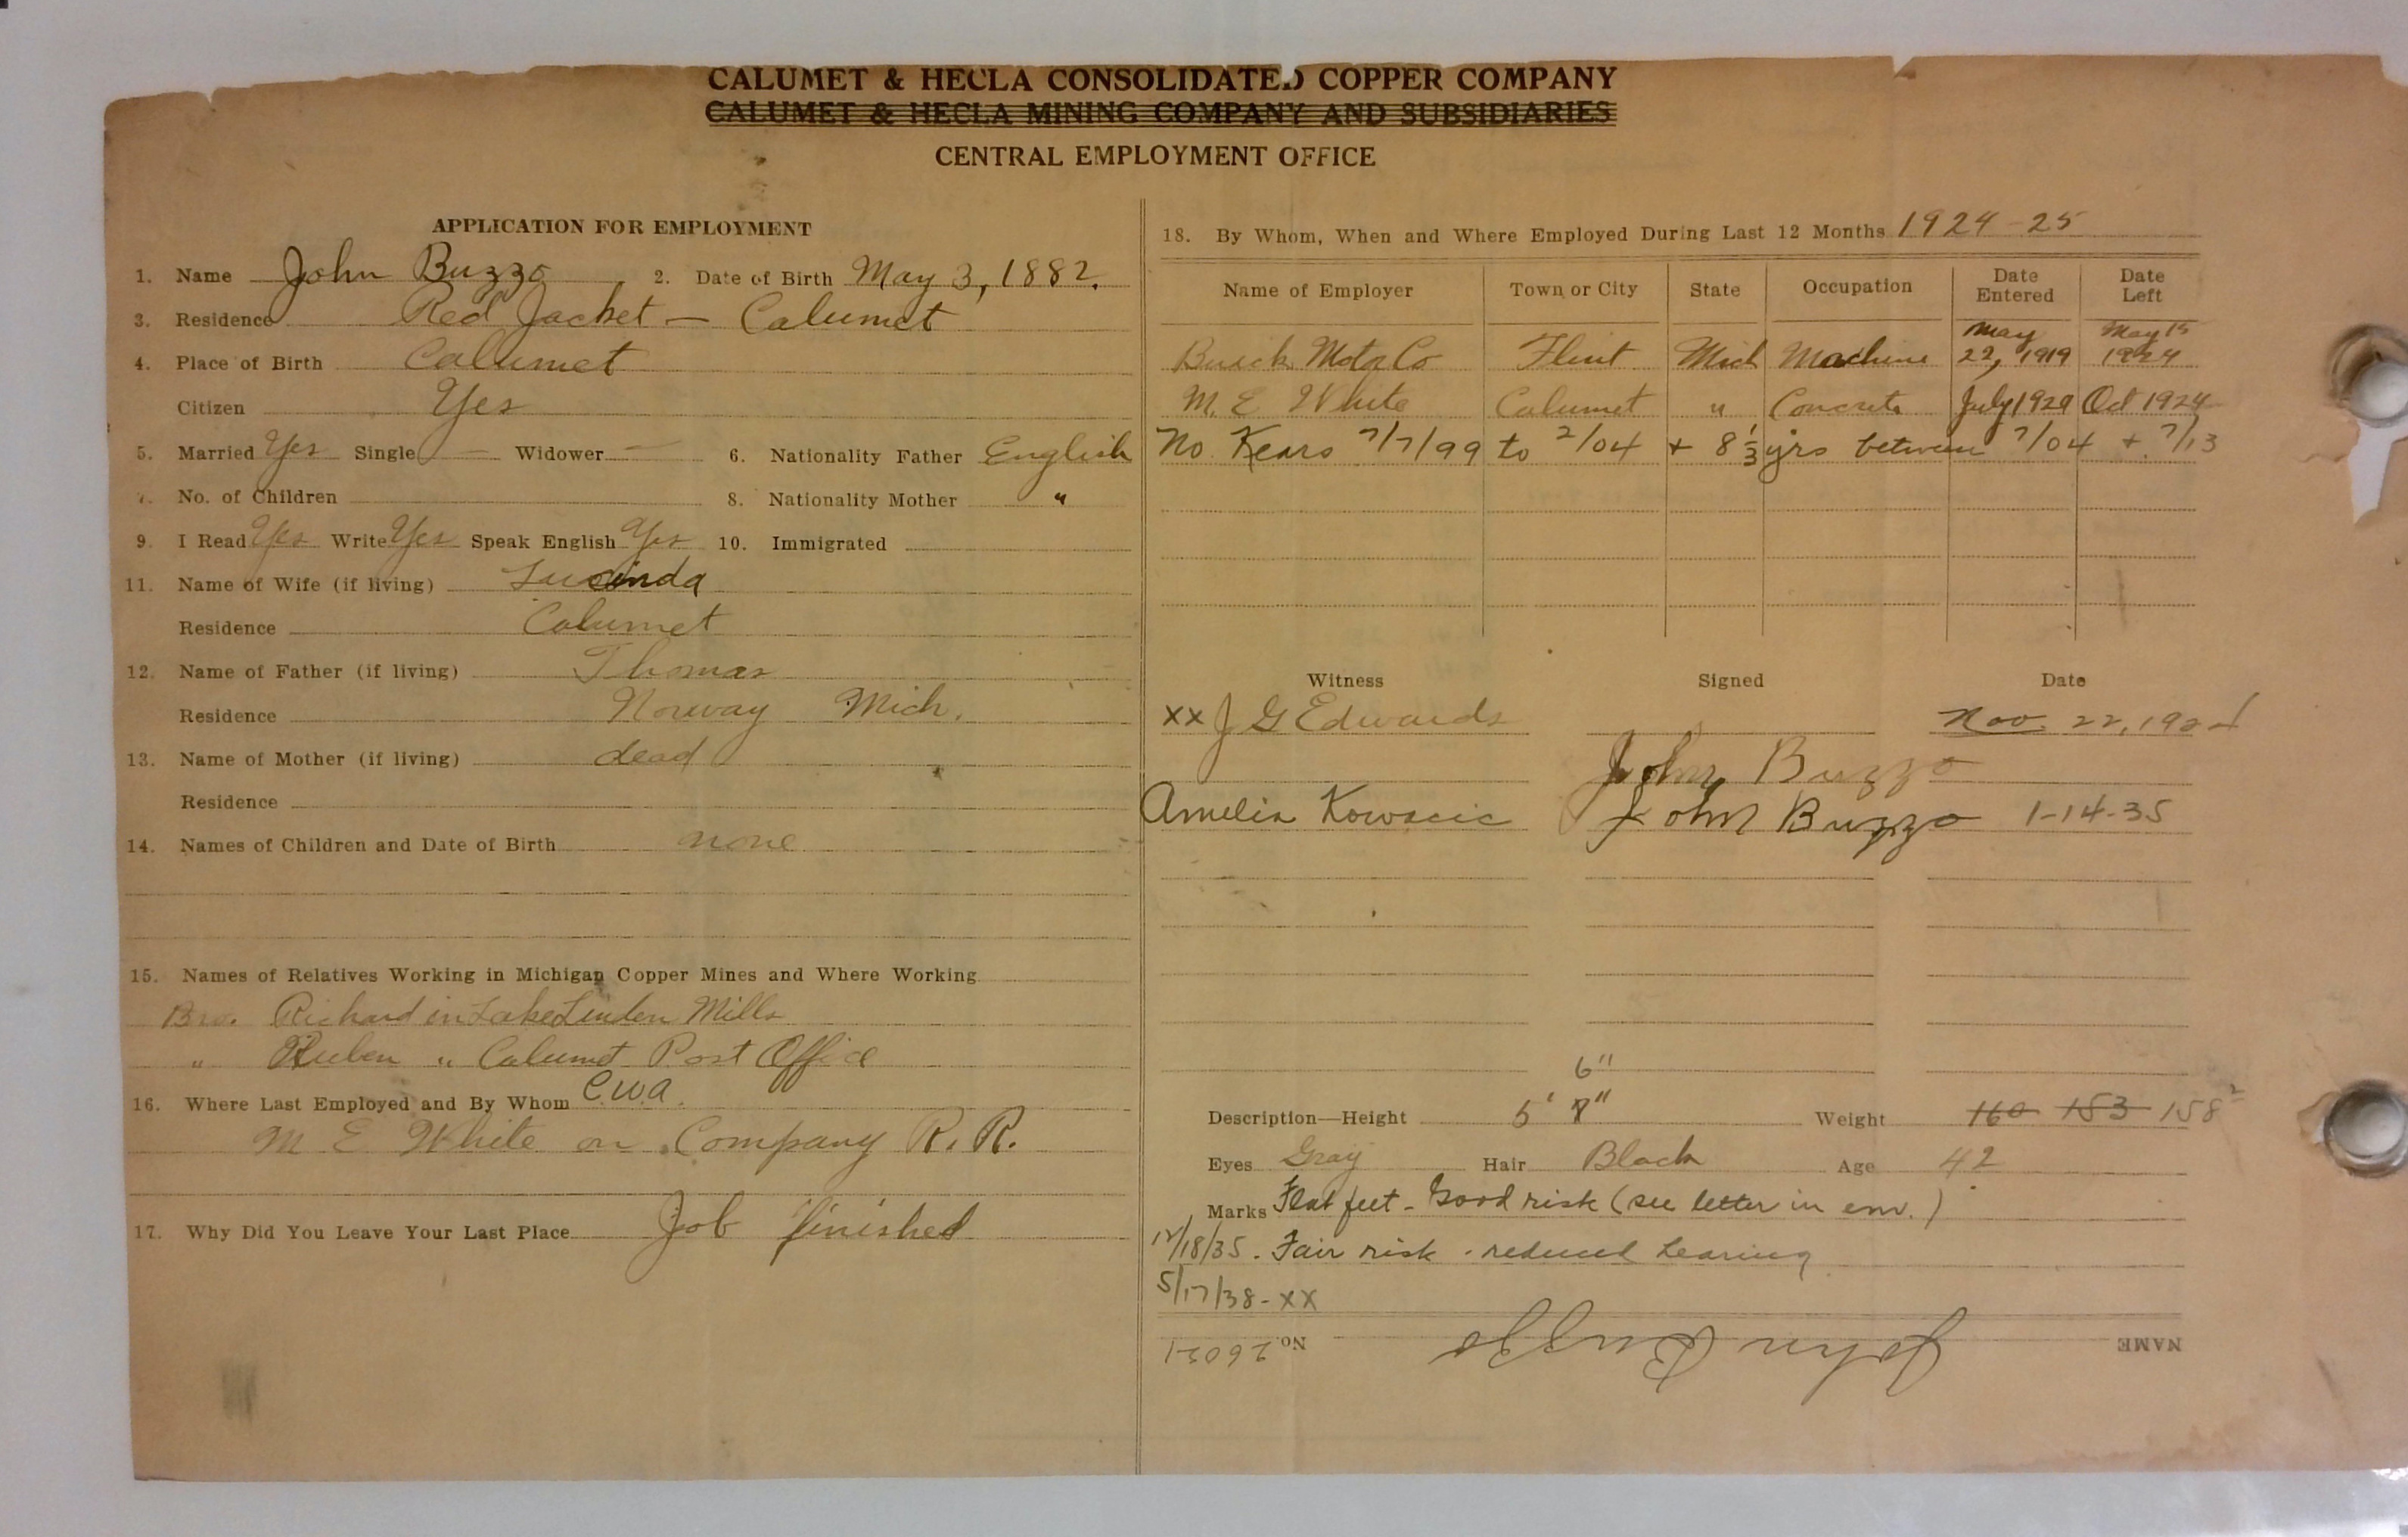 CALUMET & HECLA CONSOLIDATED COPPER COMPANY
CALUMET & HECLA MINING COMPANY AND SUBSIDIARIES
CENTRAL EMPLOYMENT OFFICE
APPLICATION FOR EMPLOYMENT
1. Name John Buzzo 2. Date of Birth May 3, 1882.
3. Residence Red Jacket — Calumet
4. Place of Birth Calumet
Citizen Yes
5. Married Yes Single — Widower — 6. Nationality Father English
7. No. of Children 8. Nationality Mother "
9. I Read Yes Write Yes Speak English Yes 10. Immigrated
11. Name of Wife (if living) Lucinda
Residence Calumet
12. Name of Father (if living) Thomas
Residence Norway Mich.
13. Name of Mother (if living) dead
Residence
14. Names of Children and Date of Birth none
15. Names of Relatives Working in Michigan Copper Mines and Where Working
Bro. Richard in Lake Linden Mills
" Reuben " Calumet Post Office
16. Where Last Employed and By Whom C.W.A.
M E White on Company R. R.
17. Why Did You Leave Your Last Place Job finished
18. By Whom, When and Where Employed During Last 12 Months 1924-25
Name of Employer Town or City State Occupation Date Entered Date Left
Buick Motor Co Flint Mich Machine May 22, 1919 May 15 1924
M. E White Calumet " Concrete July 1924 Oct 1924
No. Kears 7/7/99 to 2/04 + 8 1/3 yrs between 7/04 + 7/13
Witness Signed Date
xx J G Edwards Nov. 22, 1924
John Buzzo
Amelia Kowacic John Buzzo 1-14-35
6"
Description—Height 5' 7" Weight 160 153 158 2
Eyes Gray Hair Black Age 42
Marks Flat feet - Good risk (see letter in env.)
12/18/35. Fair risk - reduced hearing
5/17/38 - XX
NAME John Buzzo No.